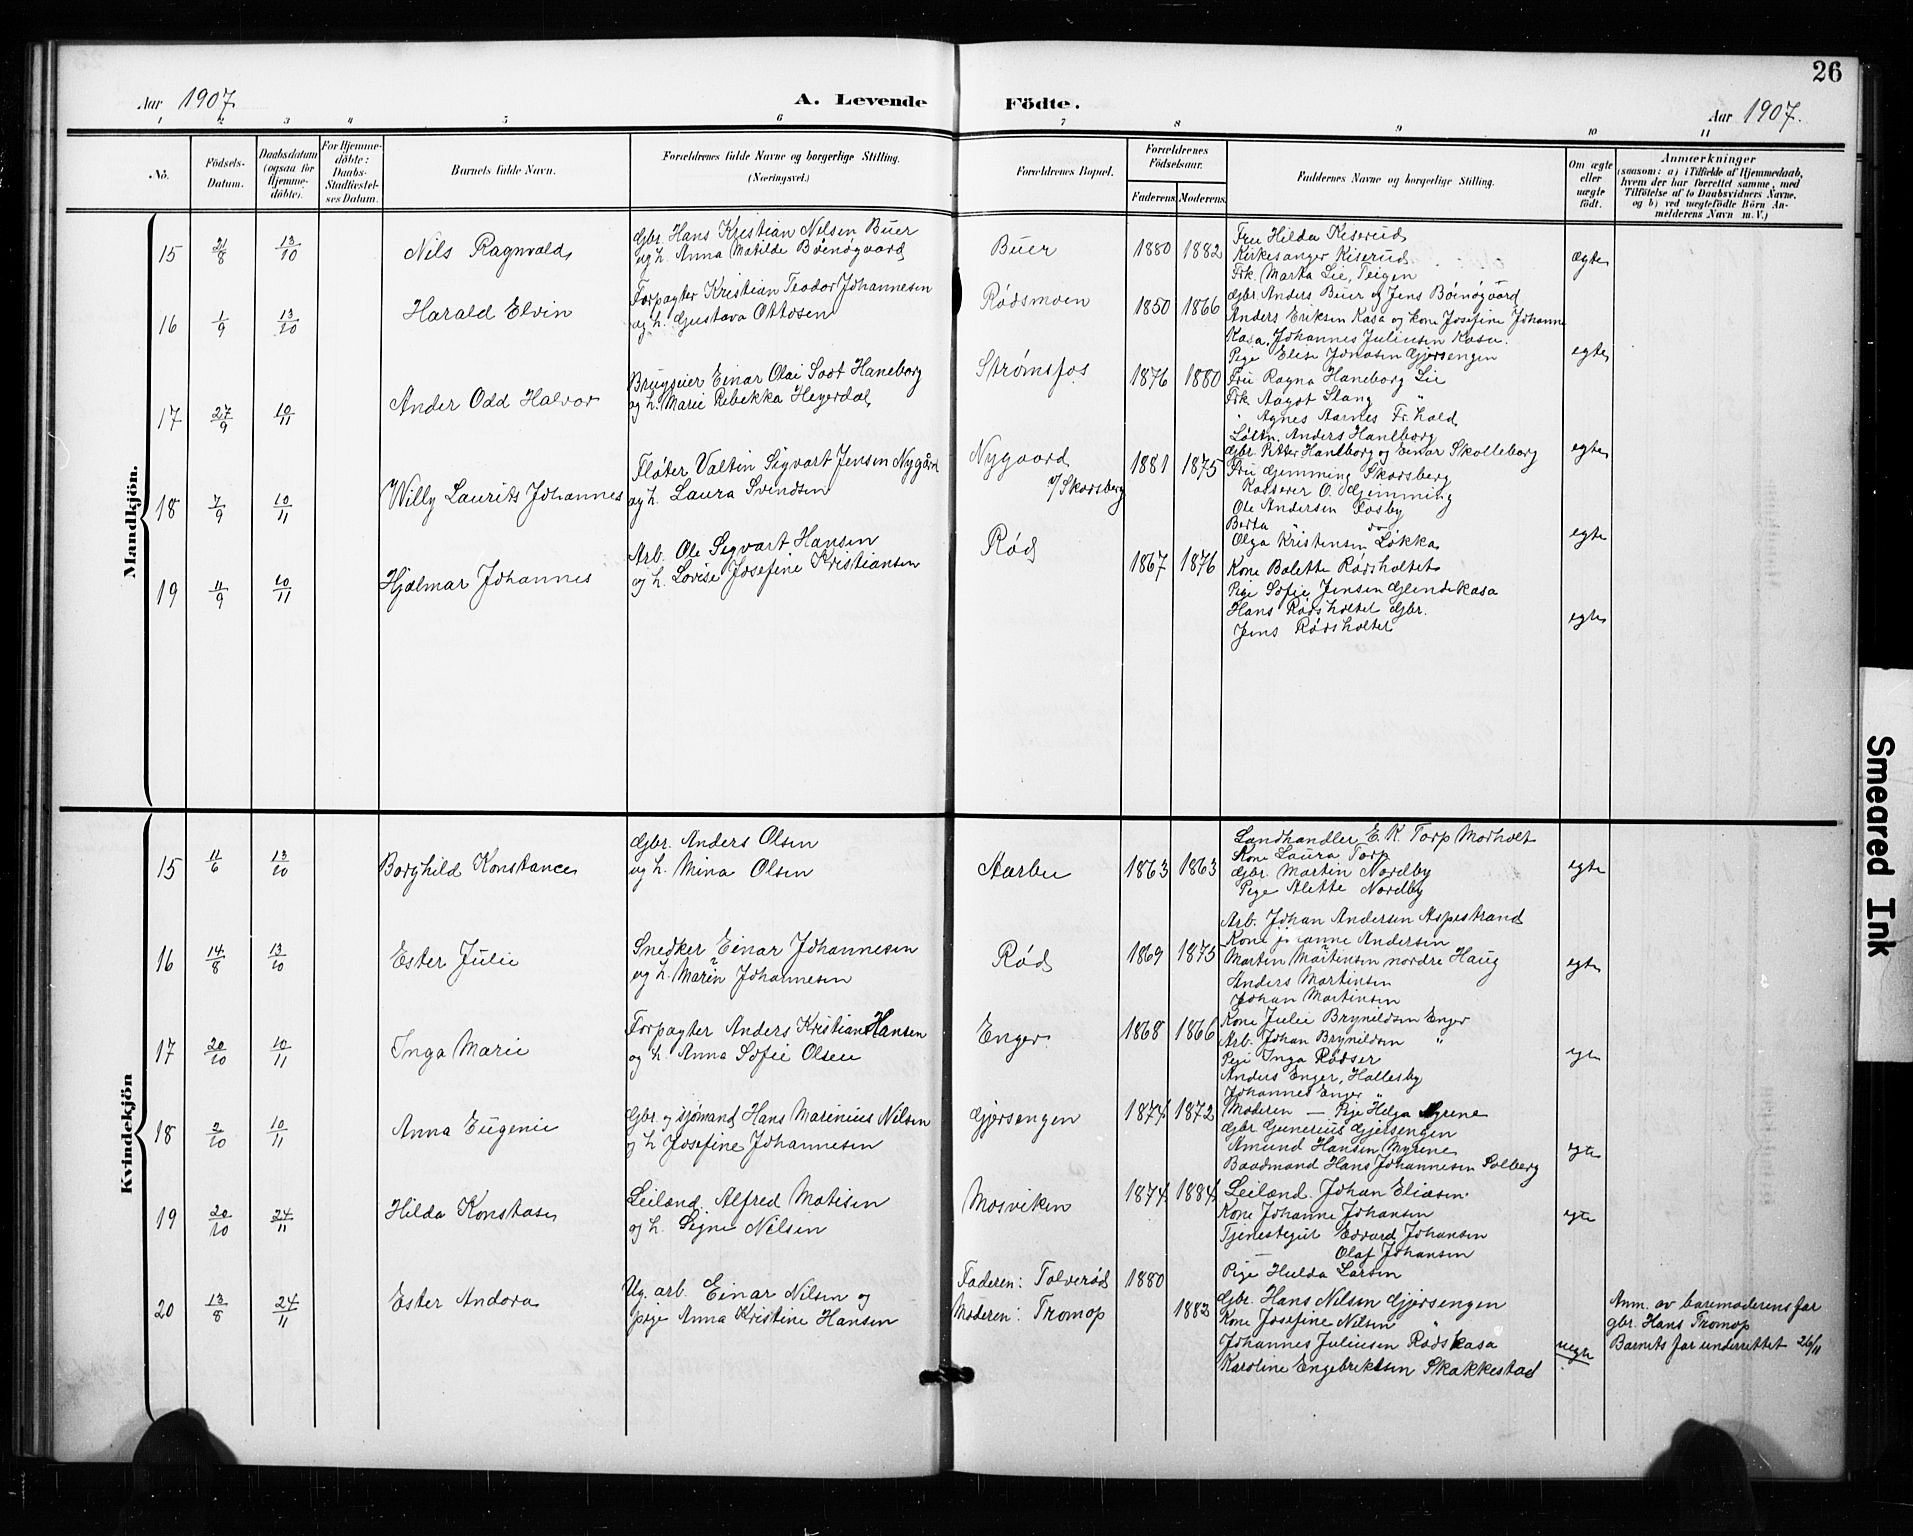 26
Aar 1907.
A. Levende Födte.
Aar 1907.
1 2 3 4 5 6 7 8 9 10 11
No.
Födsels-Datum.
Daabsdatum (ogsaa for Hjemmedöbte).
For Hjemmedöbte: Daabs-Stadfæstelses Datum.
Barnets fulde Navn.
Forældrenes fulde Navne og borgerlige Stilling. (Næringsvei.)
Forældrenes Bopæl.
Forældrenes Födselsaar.
Faderens. Moderens.
Faddernes Navne og borgerlige Stilling.
Om ægte eller uægte födt.
Anmærkninger
(saasom: a) i Tilfælde af Hjemmedaab, hvem der har forrettet samme, med Tilföielse af to Daabsvidners Navne, og b) ved uægtefödte Börn Anmelderens Navn m. V.)
Mandkjön.
15 21/8 13/10 Nils Ragnvald
Gbr. Hans Kristian Nilsen Buer
og h. Anna Matilde Böenögaard
Buer 1880 1882
Fru Hilda Kiserud
Kirkesanger Kiserud
Frk. Marta Lie, Teigen
Gbr. Anders Buer og Jens Böenögaard
ægte
16 1/9 13/10 Harald Elvin
Forpagter Kristian Teodor Johannesen
og h. Gustava Ottosen
Rödsmoen 1850 1866
Anders Eriksen Kasa og kone Josefine Johanne
Kasa, Johannes Juliusen Kasa.
Pige Elise Jonasen Gjersengen
egte
17 27/9 10/11 Ander Odd Halvor
Brugseier Einar Olai Soot Haneborg
og h. Marie Rebekka Heyerdal
Strømsfos 1876 1880
Fru Ragna Haneborg Lie
Frk. Aagot Stang "
" Agnes Aarnes Fr.hald
Löitn. Anders Haneborg
Gbr. Petter Haneborg og Einar Skolleborg
egte
18 7/9 10/11 Willy Laurits Johannes
Fløter Valtin Sigvart Jensen Nygård
og h. Laura Svendsen
Nygaard
u/Skorsberg 1881 1875
Fru Gjemming Skarsberg
Kasserer O. Gjemming
Ole Andersen Fosby
Berta " do
Olga Kristensen Løkka
egte
19 11/9 10/11 Hjalmar Johannes
Arb. Ole Sigvart Hansen
og h. Lovise Josefine Kristiansen
Rød 1867 1876
Kone Bolette Rødsholtet
Pige Sofie Jensen Glendekasa
Hans Rødsholtet Gbr.
Jens Rødsholtet
egte
Kvindekjön
15 11/6 13/10 Borghild Konstance
Gbr. Anders Olsen
og h. Mina Olsen
Aarbu 1863 1863
Landhandler E. K. Torp Morholt
Kone Laura Torp
Gbr. Martin Nordby
Pige Alette Nordby
egte
16 14/8 13/10 Ester Julie
Snedker Einar Johannesen
og h. Marin Johannesen
Rød 1869 1875
Arb. Johan Andersen Aspestrand
Kone Johanne Andersen
Martin Martinsen nordre Haug
Anders Martinsen
Johan Martinsen
egte
17 20/10 10/11 Inga Marie
Forpagter Anders Kristian Hansen
og h. Anna Sofie Olsen
Enger 1868 1866
Kone Julie Brynildsen Enger
Arb. Johan Brynildsen "
Pige Inga Rødser
Anders Enger, Hallesby
Johannes Enger "
egte
18 2/10 10/11 Anna Eugenie
Gbr. og sjømand Hans Marinius Nilsen
og h Josefine Johannesen
Gjersengen 1874 1872
Moderen — Pige Helga Myrene
Gbr Gunerius Gjersengen
Amund Hansen Myrene
Baadmand Hans Johannesen Solberg
egte
19 20/10 24/11 Hilda Konstase
Leilænd. Alfred Matisen
og h. Signe Nilsen
Mosviken 1874 1884
Leilænd. Johan Eliasen
Kone Johanne Johansen
Tjenestegut Edvard Johansen
— Olaf Johansen
Pige Hulda Larsen
egte
20 13/8 24/11 Ester Andora
Ug. arb. Einar Nilsen og
pige Anna Kristine Hansen
Faderen: Tolverød 1880
Moderen: Tromop 1883
Gbr. Hans Nilsen Gjersengen
Kone Josefine Nilsen "
Johannes Juliusen Rødskasa
Karoline Engebriktsen Skakkestad
uegte
Anm. av barnemoderens far
gbr. Hans Tromop
Barnets far underrettet 26/11
Smeared Ink